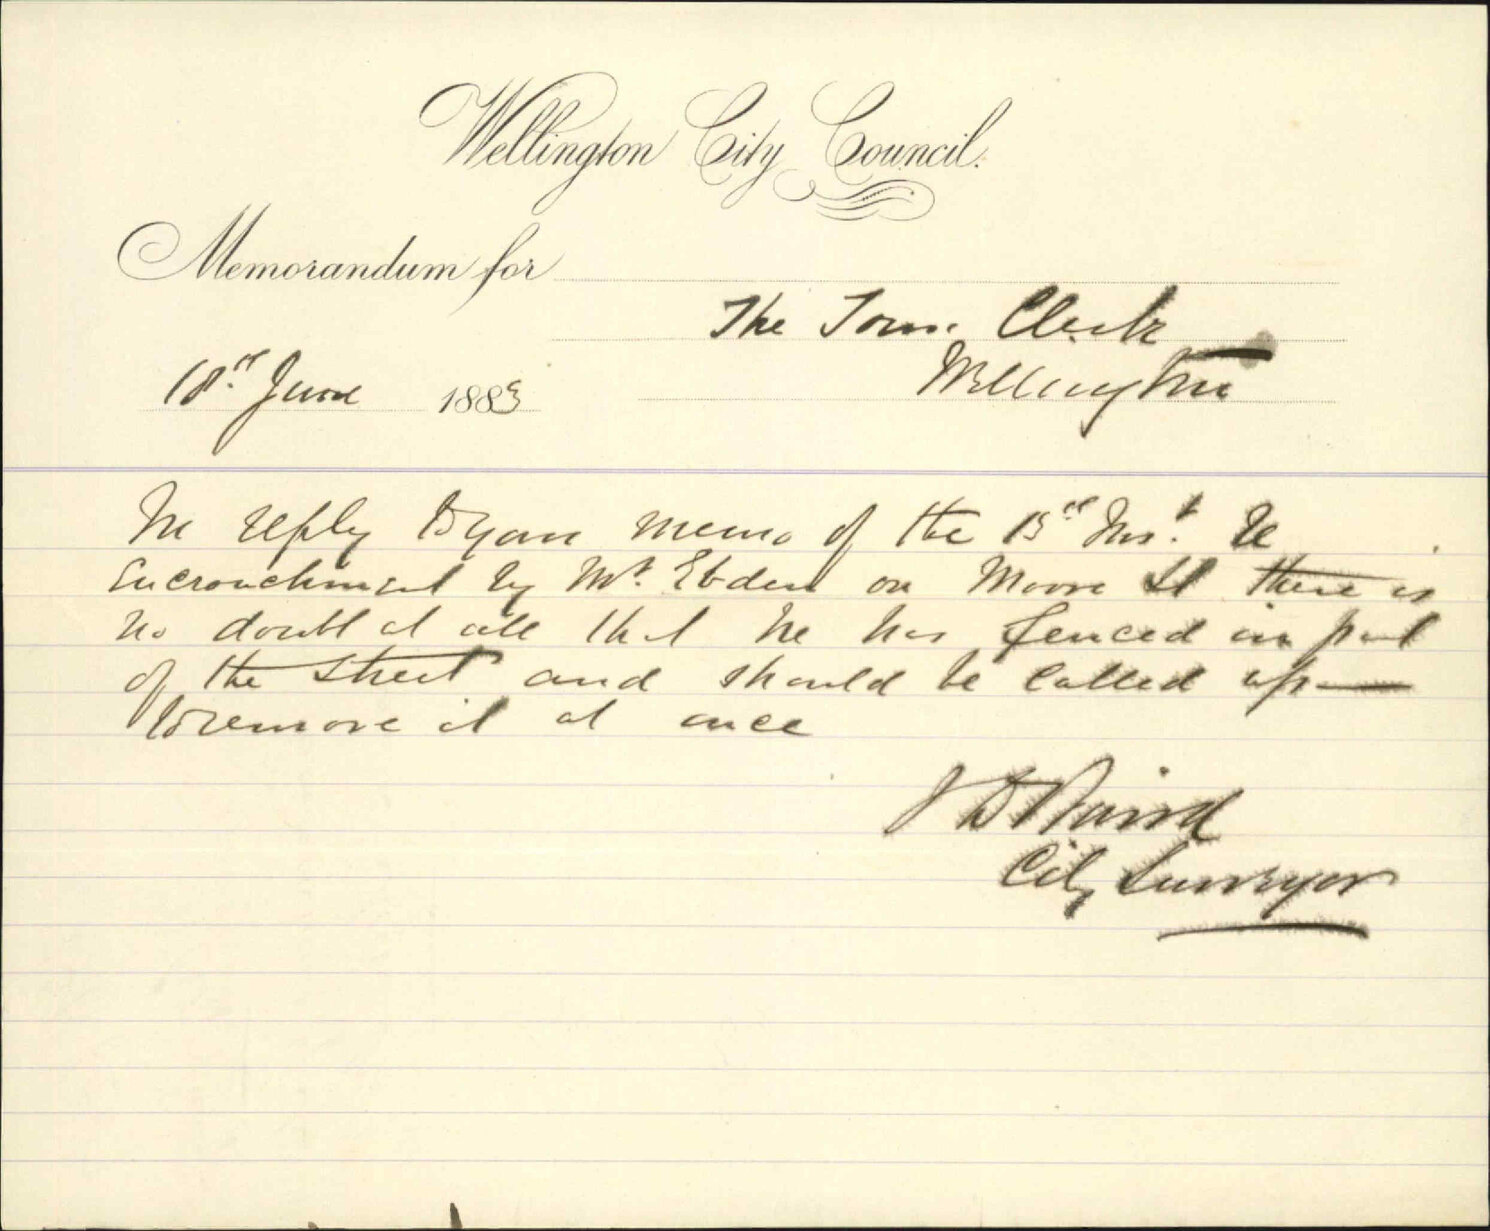 Wellington City Council.
Memorandum for
The Town Clerk
Wellington
18th June 1883
In reply to your memo of the 15th Inst. re
Encroachment by Mr. Ebden on Moore St there is
no doubt at all that he has fenced in part
of the street and should be called upon
to remove it at once
J D Baird
City Surveyor